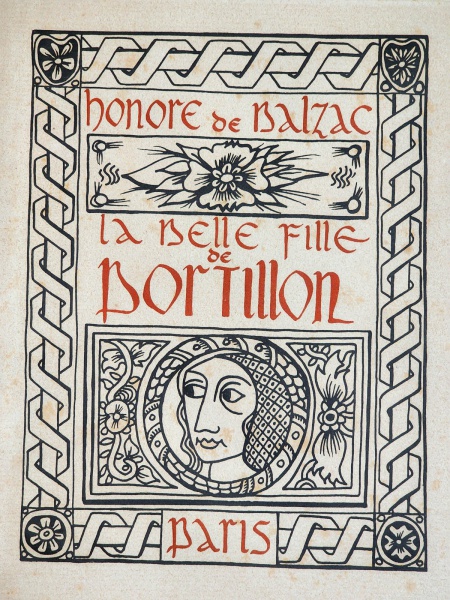 honore de Balzac
la Belle Fille
de
Portillon
Paris